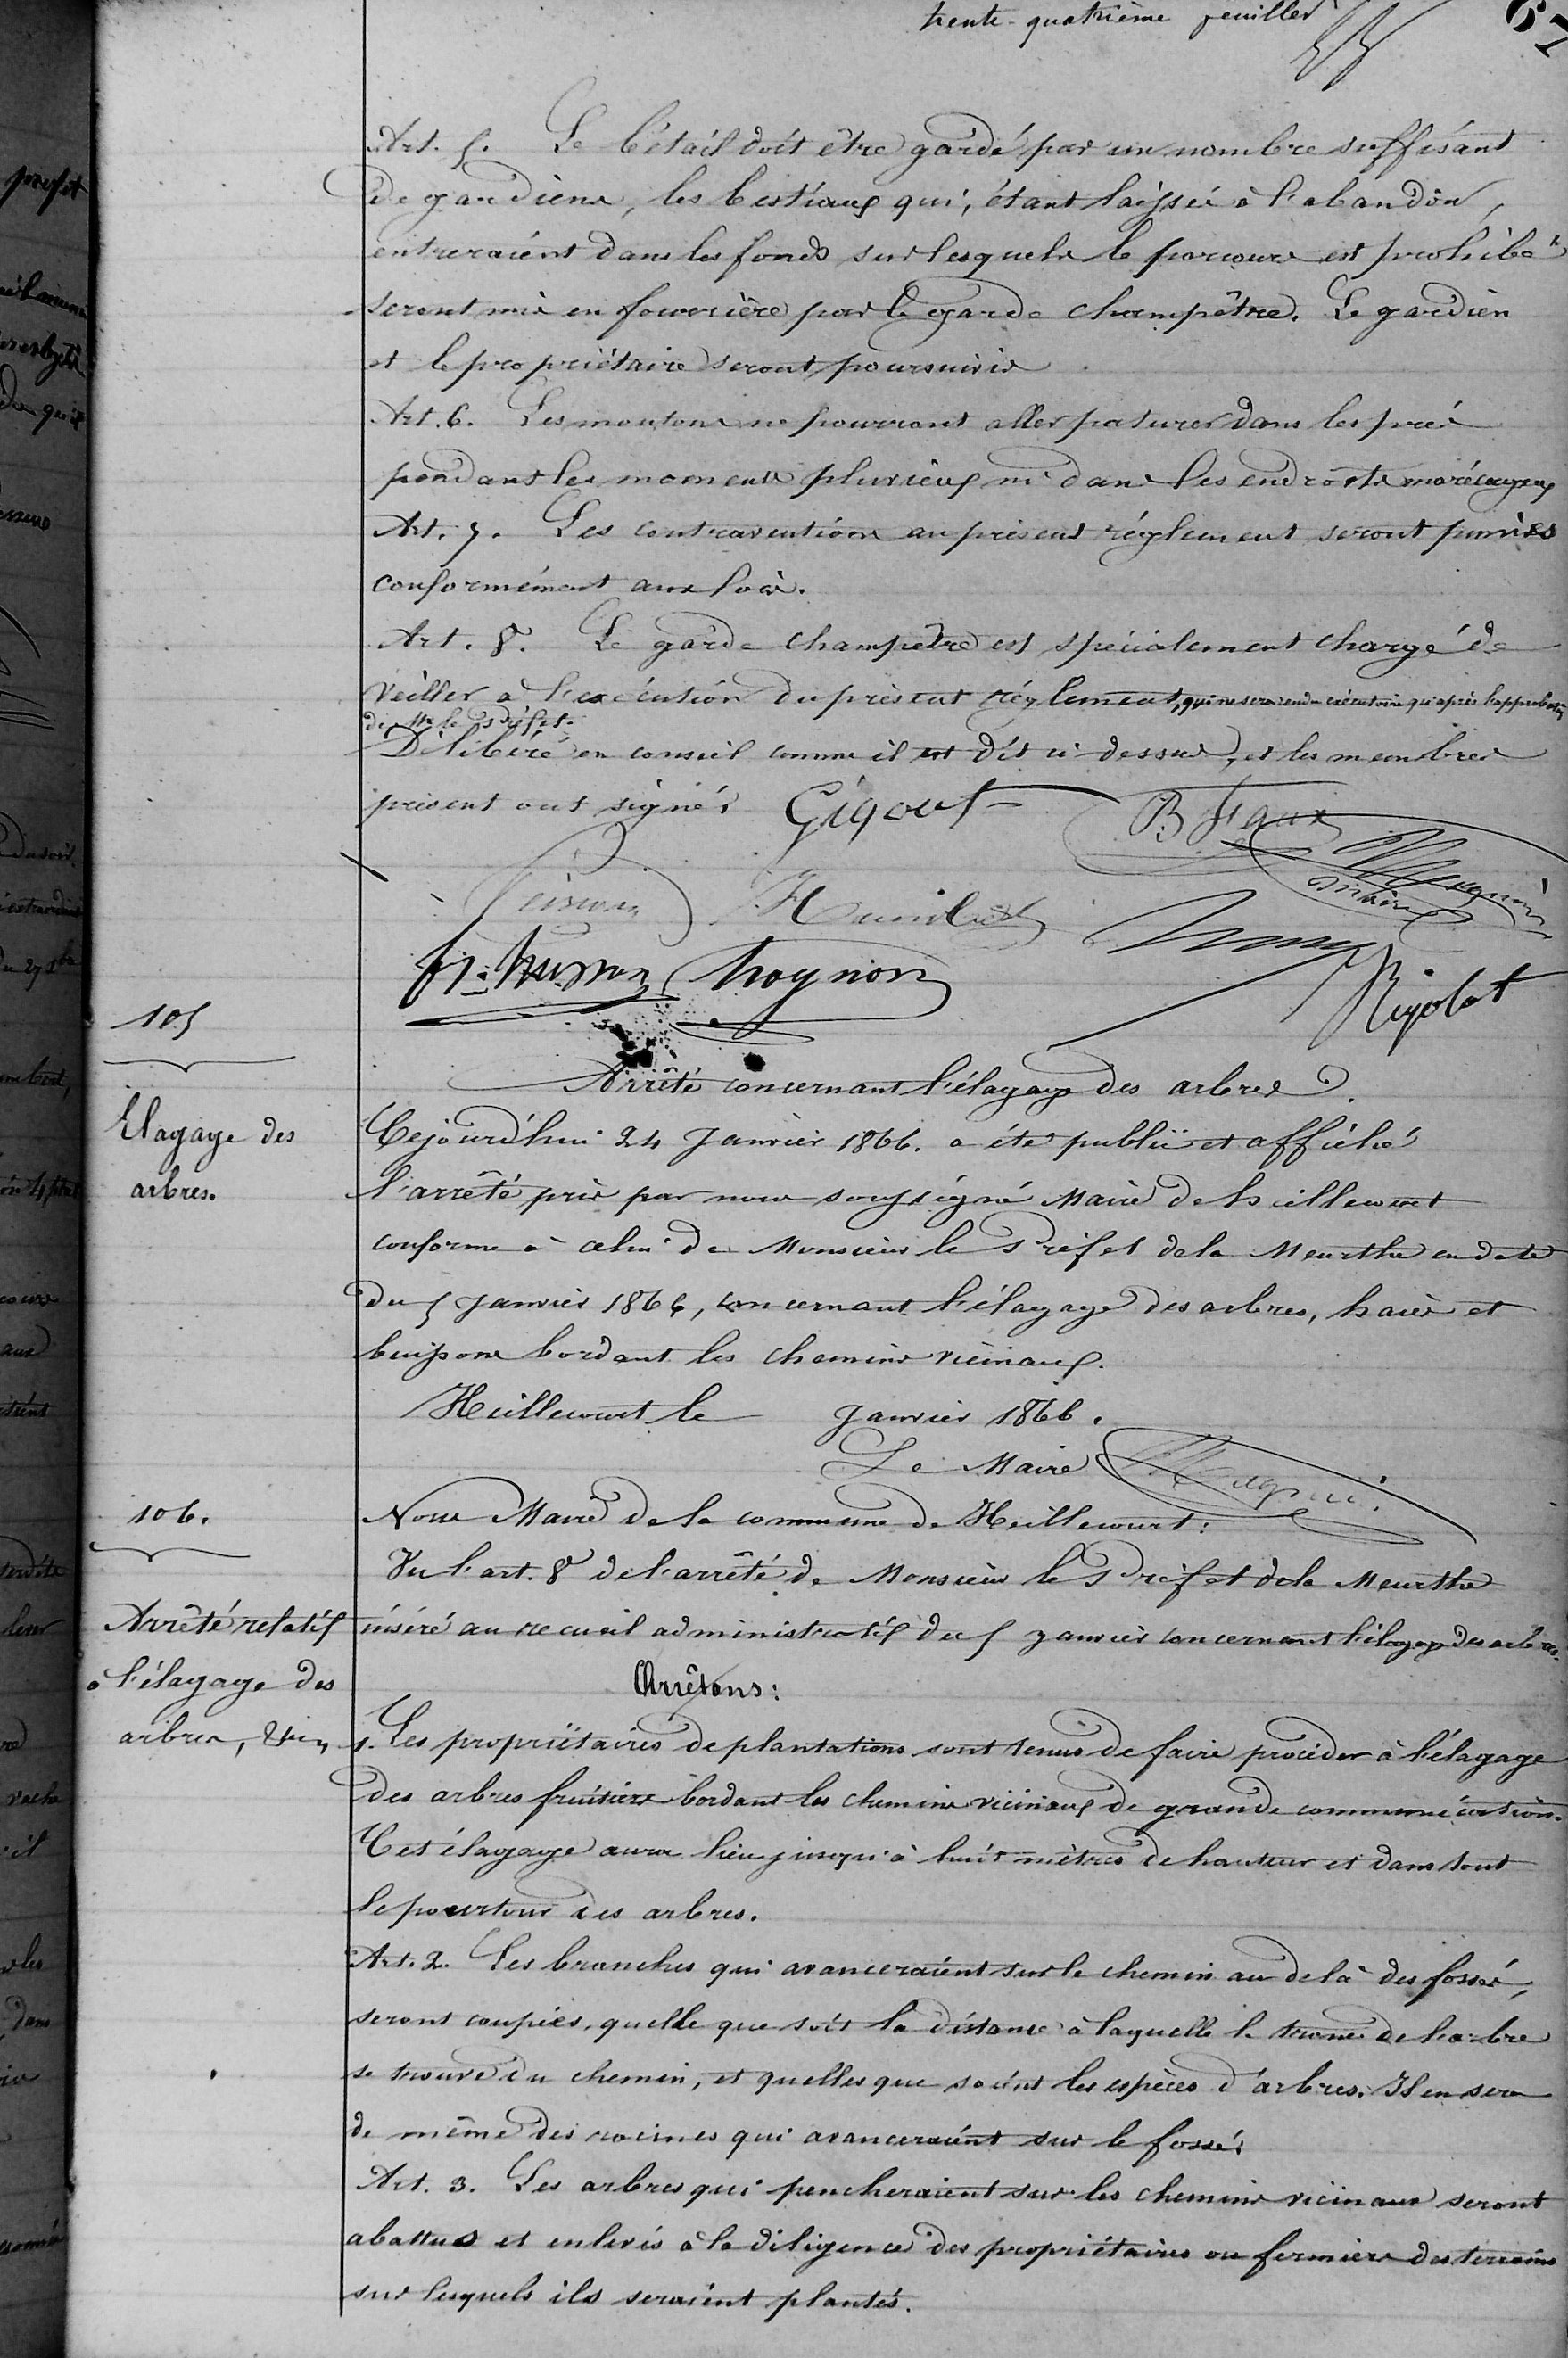 trente-quatrième feuillet
67
Art. 5. Le bétail doit être gardé par un nombre suffisant
de gardiens, les bestiaux qui, étant laissés à l'abandon,
entreraient dans les fonds sur lesquels le parcours est prohibé
seront mis en fourrière par le garde champêtre. Le gardien
et le propriétaire seront poursuivis
Art. 6. Les moutons ne pourront aller paturer dans les prés
pendant les moments pluvieux ni dans les endroits marécageux
Art. 7. Les contraventions au présent réglement seront punies
conformément aux lois.
Art. 8. Le garde champêtre est spécialement chargé de
veiller à l'exécution du présent réglement, qui ne sera rendu exécutoire qu'après l'approbation
de Mr le Préfet.
Délibéré en conseil comme il est dit ci-dessus, et les membres
présent ont signé.
Gigout
Fr. Husson
Noynon
Rigolot
105
Elagage des
arbres.
Arrêté concernant l'élagage des arbres.
Cejourd'hui 24 Janvier 1866. a été publié et affiché
l'arrêté pris par nous soussigné Maire de heillecourt
conforme à celui de Monsieur le Préfet de la Meurthe en date
du 5 Janvier 1866, concernant l'élagage des arbres, haies et
buissons bordant les chemins vicinaux.
Heillecourt le Janvier 1866.
Le Maire
106.
Arrêté relatif
à l'élagage des
arbres,
Nous Maire de la commune de Heillecourt:
Vu l'art. 8 de l'arrêté de Monsieur le Préfet de la Meurthe
inséré au recueil administratif du 5 janvier concernant l'élagage des arbres.
Arrêtons:
1. Les propriétaires de plantations sont tenus de faire procéder à l'élagage
des arbres fruitiers bordant les chemins vicinaux de grande communication.
Cet élagage aura lieu jusqu'à huit mètres de hauteur et dans tout
le pourtour des arbres.
Art. 2. Les branches qui avanceraient sur le chemin au delà des fossés,
seront coupées, quelle que soit la distance à laquelle le tronc de l'arbre
se trouve du chemin, et quelles que soient les espèces d'arbres. Il en sera
de même des racines qui avanceraient sur le fossé.
Art. 3. Les arbres qui pencheraient sur les chemins vicinaux seront
abattus et enlevés à la diligence des propriétaires ou fermiers des terrains
sur lesquels ils seraient plantés.